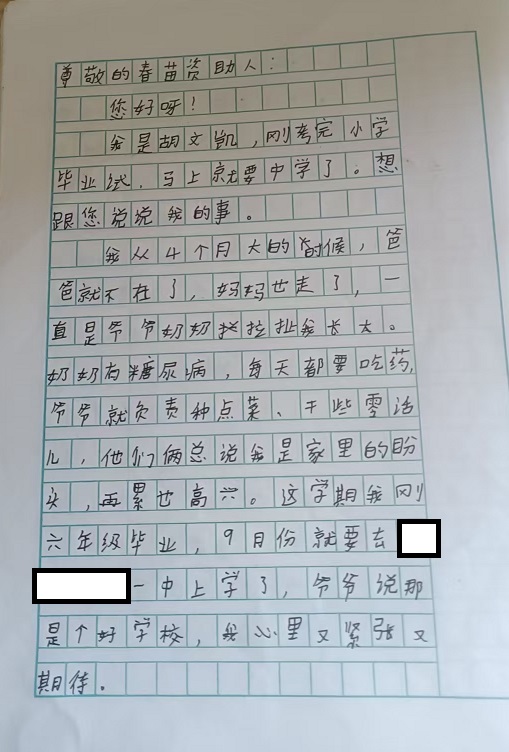 尊敬的春苗资助人：
您好呀！
我是胡文凯，刚考完小学
毕业试．马上就要中学了。想
跟您说说我的事。
我从4个月大的时候，爸
爸就不在了，妈妈也走了，一
直是爷爷奶奶拉扯我长大。
奶奶有糖尿病，每天都要吃药，
爷爷就负责种点菜、干些零活
儿，他们俩总说我是家里的盼
头，再累也高兴。这学期我刚
六年级毕业，9月份就要去
一中上学了，爷爷说那
是个好学校，我心里又紧张又
期待．